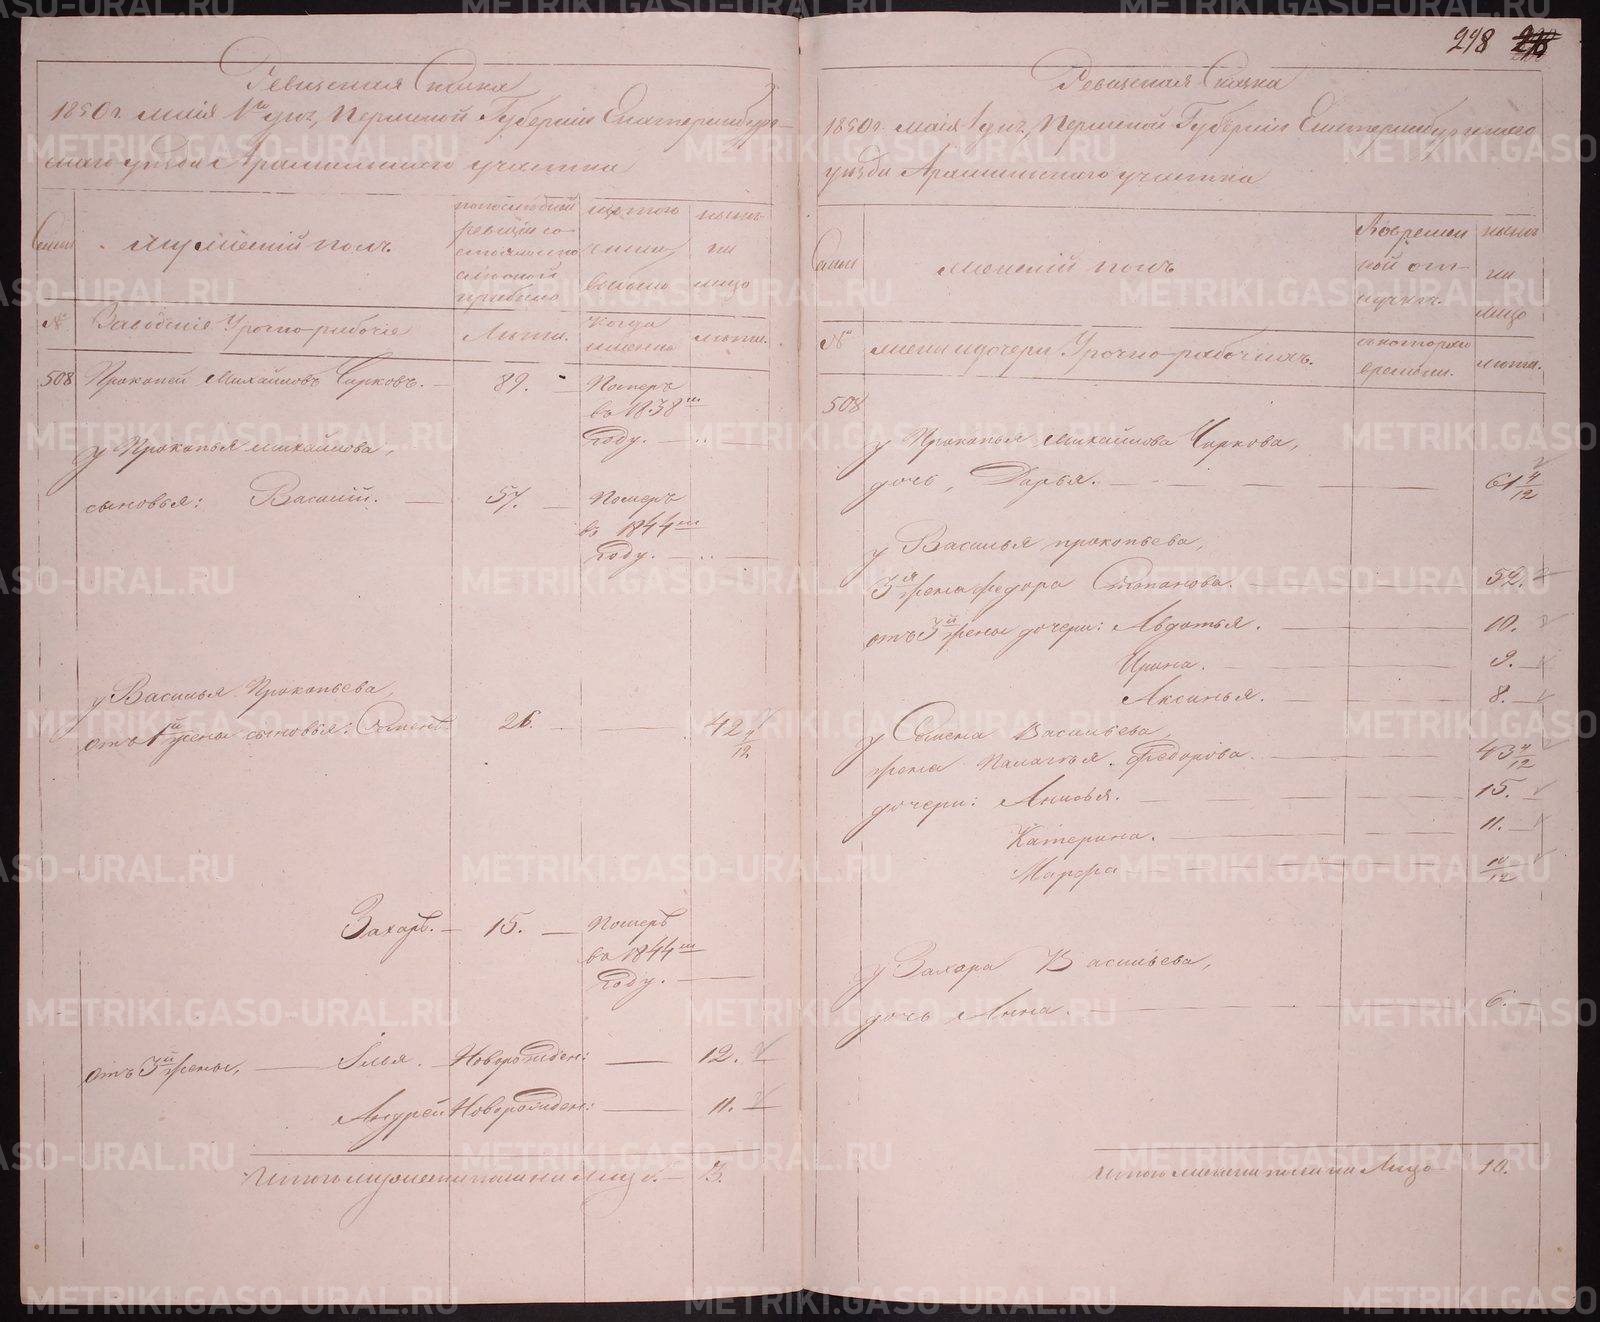 298
Ревизская Сказка
1850 г. маiя 1го дня, Пермской Губернiи Екатеринбург-
скаго уезда Арамильского участка
Семьи
мужескiй полъ.
по последней
ревизiи со-
стояло и по
оной
прибыло
изъ того
числа
выбыло
нынъ
на
лицо
№
Заводскiе Урочно-рабочiе
Лета.
Когда
именно
лета.
508
Прокопей Михайловъ Чарковъ.
89.
Померъ
въ 1838м
году.
у Прокопья михайлова,
сыновья: Василiй.
57.
Померъ
въ 1844м
году.
у Василья Прокопьева,
отъ 1й жены сыновья: Семенъ
26.
42 4/12
Захаръ.
15.
Померъ
въ 1844м
году.
отъ 3й жены,
Илья.
Новорожден:
12.
Андрей
Новорожден:
11.
Итого мужеска пола на лицо.
3.
Ревизская Сказка
1850 г. маiя 1 дня, Пермской Губернiи Екатеринбургскаго
уезда Арамильскаго участка
Семьи
женскiй полъ
Во времен
ной от-
лучке.
нынъ
на
лицо
№
жены и дочери Урочно-рабочихъ.
съ котораго
времени.
лета.
508
у Прокопья Михайлова Чаркова,
дочь, Дарья.
61 4/12
у Василья прокопьева,
3я жена Федора Степанова.
52.
отъ 3й жены дочери: Авдотья.
10.
Ирина.
9.
Аксинья.
8.
у Семена Васильева,
жена Палагья Федорова.
43 4/12
дочери: Анисья.
15.
Катерина.
11.
Марфа
10/12
у Захара Васильева,
дочь Анна.
6.
Итого женска пола на Лицо
10.
METRIKI.GASO-URAL.RU